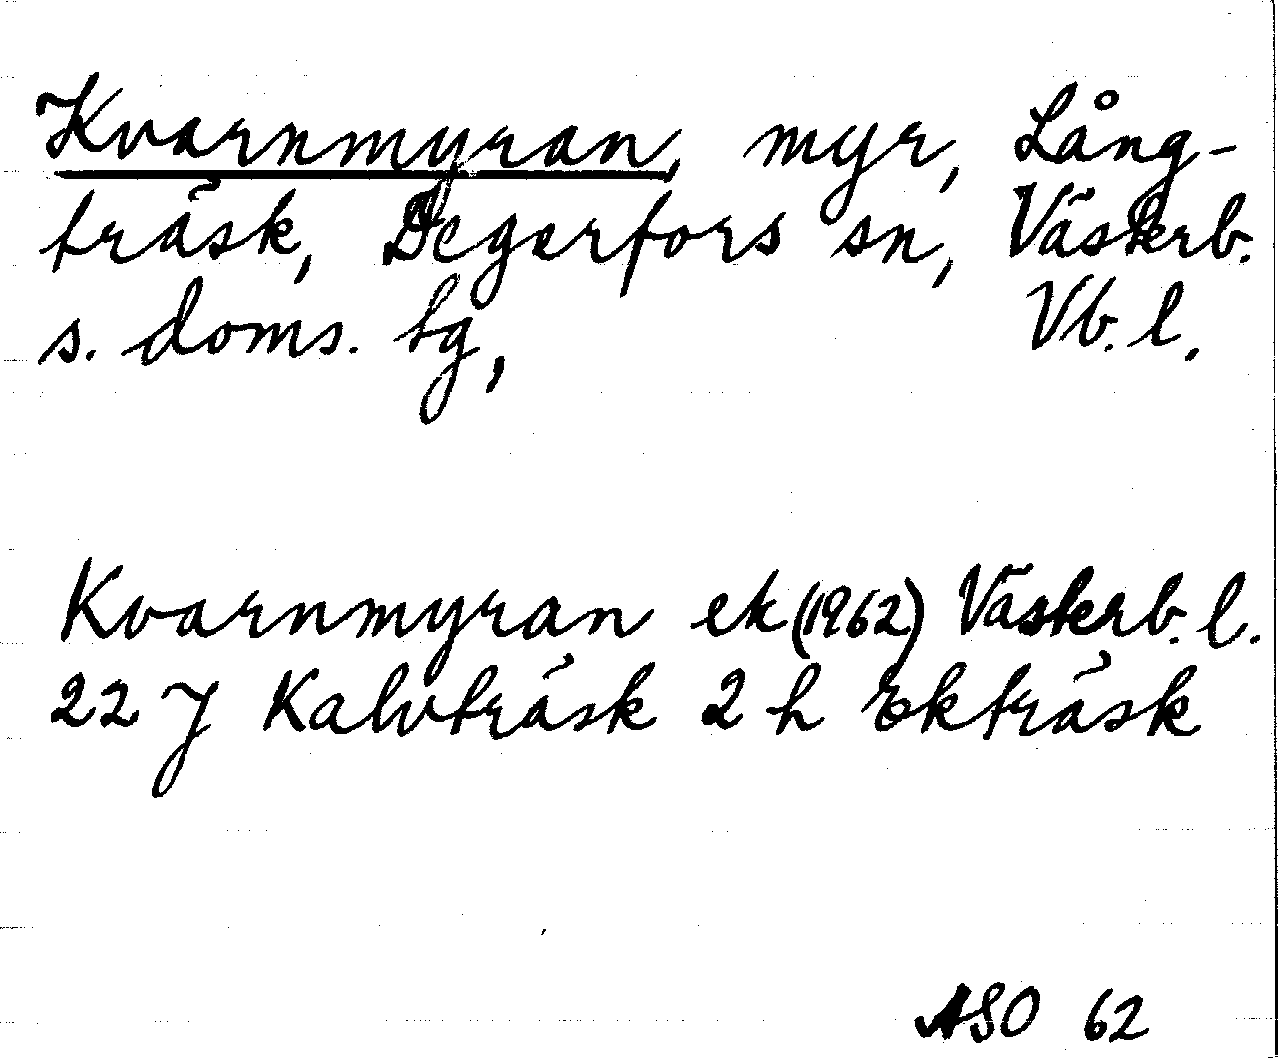 Kvarnmyran, myr, Lång-
träsk, Degerfors sn, Västerb.
s. doms. tg, Vb. l.
Kvarnmyran ek (1962) Västerb. l.
22 J Kalvträsk 2 h Ekträsk
ASO 62